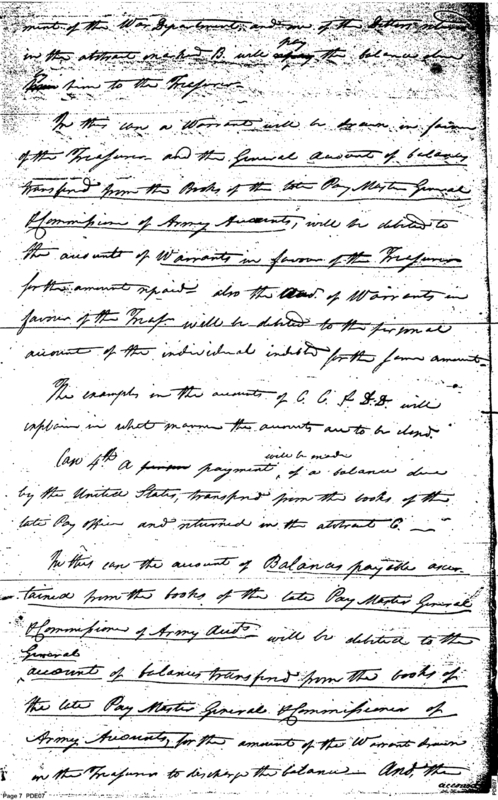 ment of the War Department, and one of the Debtors
in the abstract marked B. will pay the balance due
from him to the Treasurer.
In this case a Warrant will be drawn in favour
of the Treasurer and the General account of balances
transferred from the Books of the late Pay Master General
& Commissioner of Army Accounts, will be debited to
the account of Warrants in favour of the Treasurer
for the amount repaid - also the Acct. of Warrants in
favour of the Treasr. will be debited to the personal
account of the individual indebted for the same amount.
The examples in the accounts of C. C. & D. D. will
explain in what manner the accounts are to be closed.
Case 4th A payment will be made, of a balance due
by the United States, transferred from the books of the
late Pay office and returned in the abstract C.
In this case the account of Balances payable ascer-
tained from the books of the late Pay Master General
& Commissioner of Army Accts. will be debited to the
General account of balances transferred from the books of
the late Pay Master General & Commissioner of
Army Accounts, for the amount of the Warrant drawn
on the Treasurer to discharge the balance - And, the
account
Page 7 PDE07